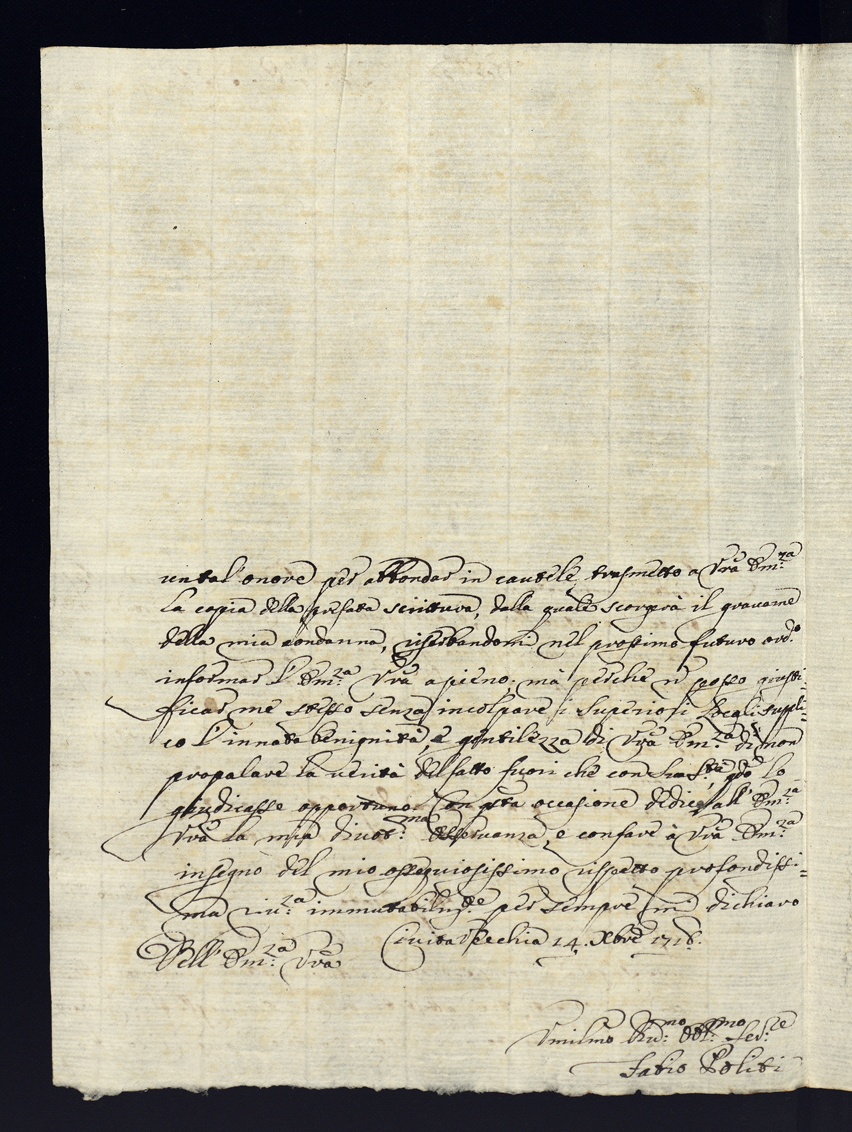 un tal' onore per abbondar in cautele, trasmetto a Vrã Em:za
la copia della prefata scrittura, dalla quale scorgerà il gravame
della mia condanna, riserbandomi nel prossimo futuro ord:o
informar l'Em:za Vrã a pieno; mà perche nõ posso giusti-
ficar me stesso senza incolpare i Superiori
co l'innata benignità, e gentilezza di Vrã Em:za di non
propalare la verità del fatto fuori che con Sua Stà, qdõ lo
giudicasse opportuno. Con qsta occasione dedico all' Em:za
Vrã la mia divot:ma osservanza, e confare à Vrã Em:za
in segno del mio ossequiosissimo rispetto profondissi-
ma immutabilm:e per sempre mi dichiaro
Dell' Em:za Vrã Civita Vecchia 14. Xbre 1718.
Vmilmo Obl:mo Ser:re
Fabio Politi